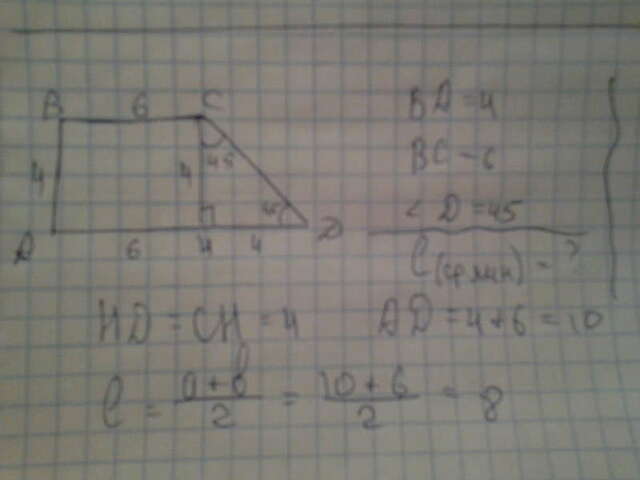 B 6 C
4 4 45 45
A 6 H 4 D
BA = 4
BC - 6
< D = 45
l (ср лин) - ?
HD = CH = 4
AD = 4 + 6 = 10
l = a + b / 2 = 10 + 6 / 2 = 8